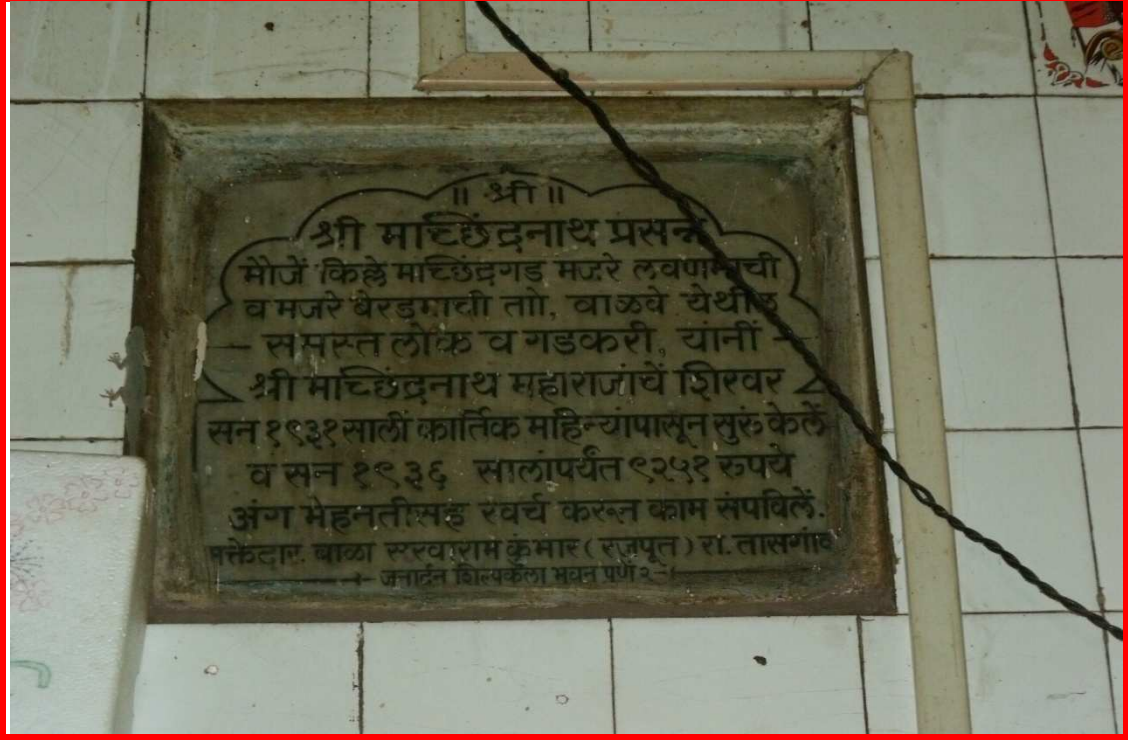 ॥ श्री ॥
श्री माच्छिंद्रनाथ प्रसन्न
मौजें किल्ले माच्छिंद्रगड मजरे लवणमाची
व मजरे बेरडमाची ता॥, वाळवे येथील
समस्त लोक व गडकरी, यांनीं
श्री माच्छिंद्रनाथ महाराजांचें शिखर
सन १९३१ सालीं कार्तिक महिन्यांपासून सुरूं केलें
व सन १९३६ सालांपर्यंत ९२५१ रुपये
अंग मेहनतीसह खर्च करून काम संपविलें.
मक्तेदार बाळा सखाराम कुंमार (रजपूत) रा. तासगांव
जनार्दन शिल्पकला भवन पुणें २